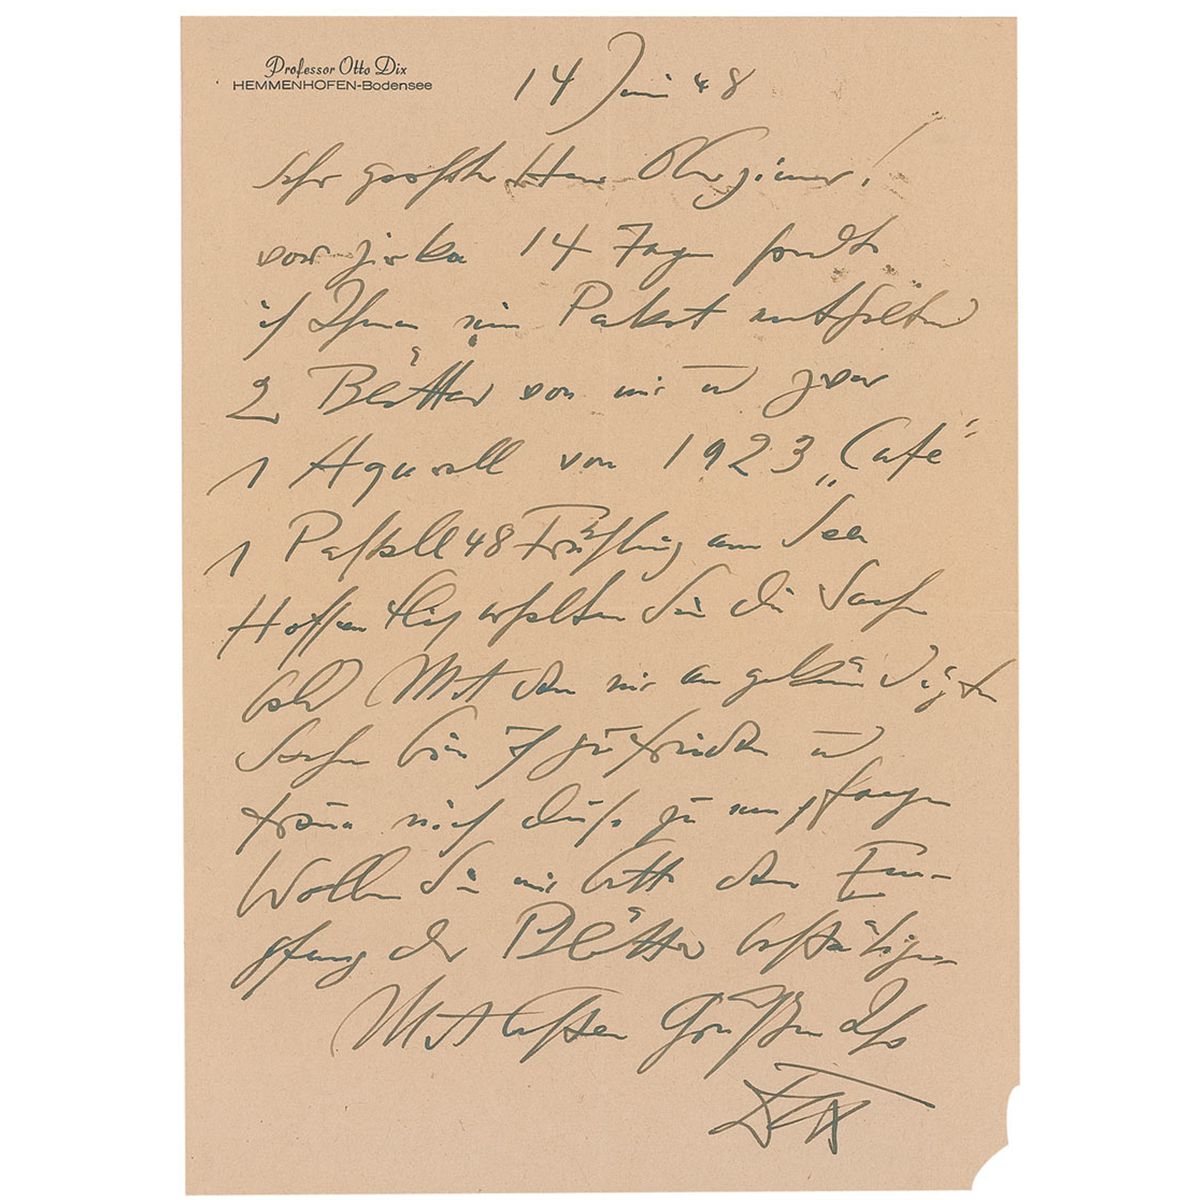 Professor Otto Dix
HEMMENHOFEN-Bodensee
14 Juni 48
Sehr geehrter Herr
vor zirka 14 Tagen sandte
ich Ihnen ein Paket enthaltend
2 Blätter von mir u zwar
1 Aquarell von 1923 „Café"
1 Pastell 48 Frühling am See
Hoffentlich erhalten Sie die Sachen
bald Mit den mir angekündigten
Sachen bin ich zufrieden u
freue mich diese zu empfangen
Wollen Sie mir bitte den Em-
pfang der Blätter bestätigen
Mit besten Grüßen Ihr
Dix